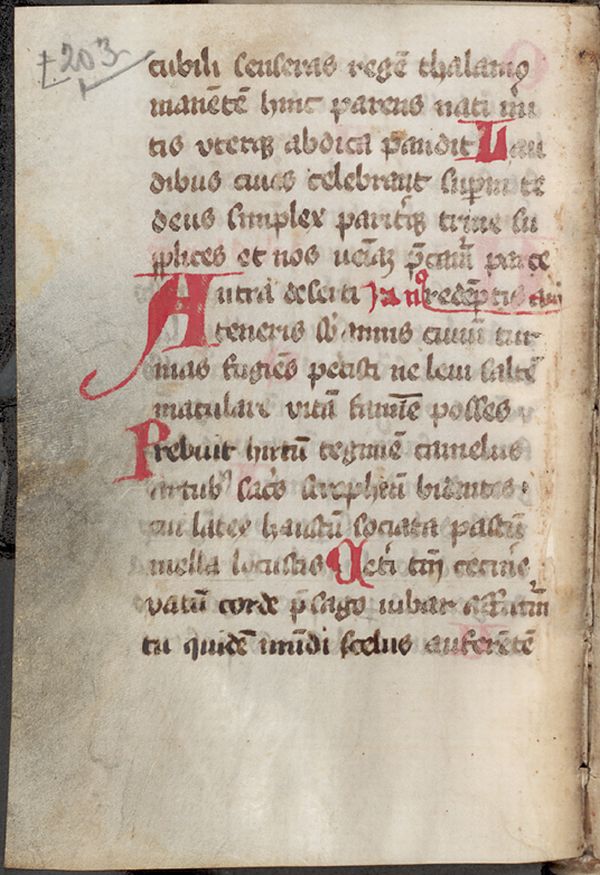 203
cubili senseras regē thalamo
manētē hinc parens nati
tis uterqȝ abdita pandit Lau
dibus ciues celebrant
deus simplex pariterqȝ trine su
pplices et nos ueniā p̄cam̄ parce
Antra deserti redēptis
teneris sb annis ciuiū tur
mas fugiēs petisti ne leui saltē
maculare uitā famīe posses
Prebuit hirtū tegimē camelus
artubꝰ sac̄s strophiū bidentes
cui latex haustū sociata pastū
mella locustis Cet̄i tm̄ cecine
vatū corde p̄sago iubar affutur̄
tu quidē mūdi scelus auferētē